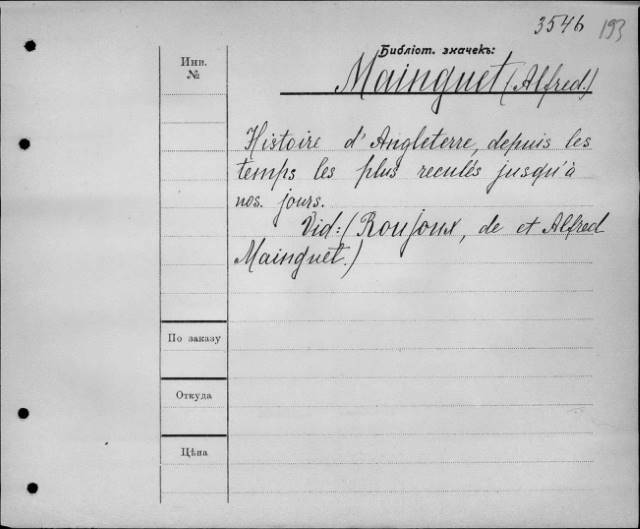 3546 193
Библіот. значекъ:
Инв.
№
Mainguet (Alfred.)
Histoire d'Angleterre, depuis les
temps les plus reculés jusqu'à
nos. jours.
Vid: (Roujoux, de et Alfred
Mainguet.)
По заказу
Откуда
Цѣна